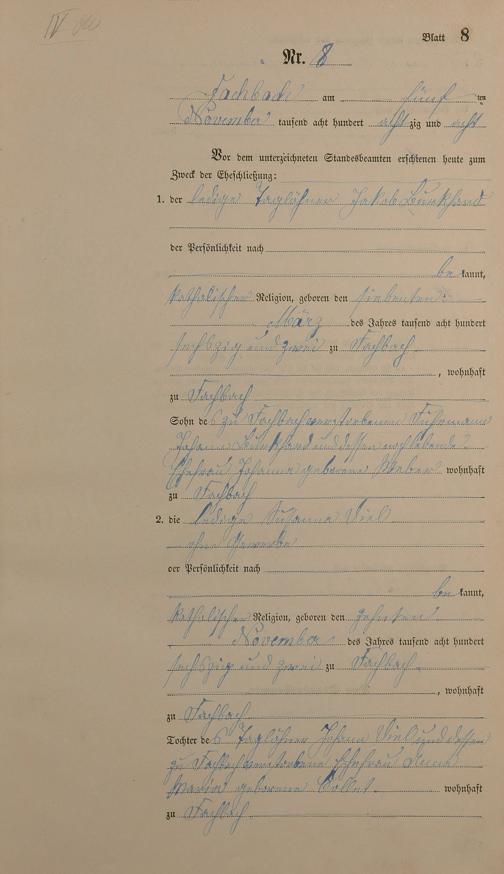 Blatt 8
Nr. 8
Fachbach am fünf ten
November tausend acht hundert acht zig und acht
Vor dem unterzeichneten Standesbeamten erschienen heute zum
Zweck der Eheschließung:
1. der ledige Taglöhner Jakob Burkhard
der Persönlichkeit nach
be kannt,
katholischer Religion, geboren den siebenten
März des Jahres tausend acht hundert
sechszig und zwei zu Fachbach
, wohnhaft
zu Fachbach
Sohn des zu Fachbach verstorbenen Fuhrmann
Johann Burkhard und dessen noch lebende
Ehefrau Johanna geborene Weber wohnhaft
zu Fachbach
2. die ledige Susanna Diel
ohne Gewerbe
der Persönlichkeit nach
be kannt,
katholischer Religion, geboren den zehnten
November des Jahres tausend acht hundert
sechszig und zwei zu Fachbach
, wohnhaft
zu Fachbach
Tochter des Taglöhner Johann Diel und dessen
zu Fachbach verstorbene Ehefrau Anna
Maria geborene wohnhaft
zu Fachbach